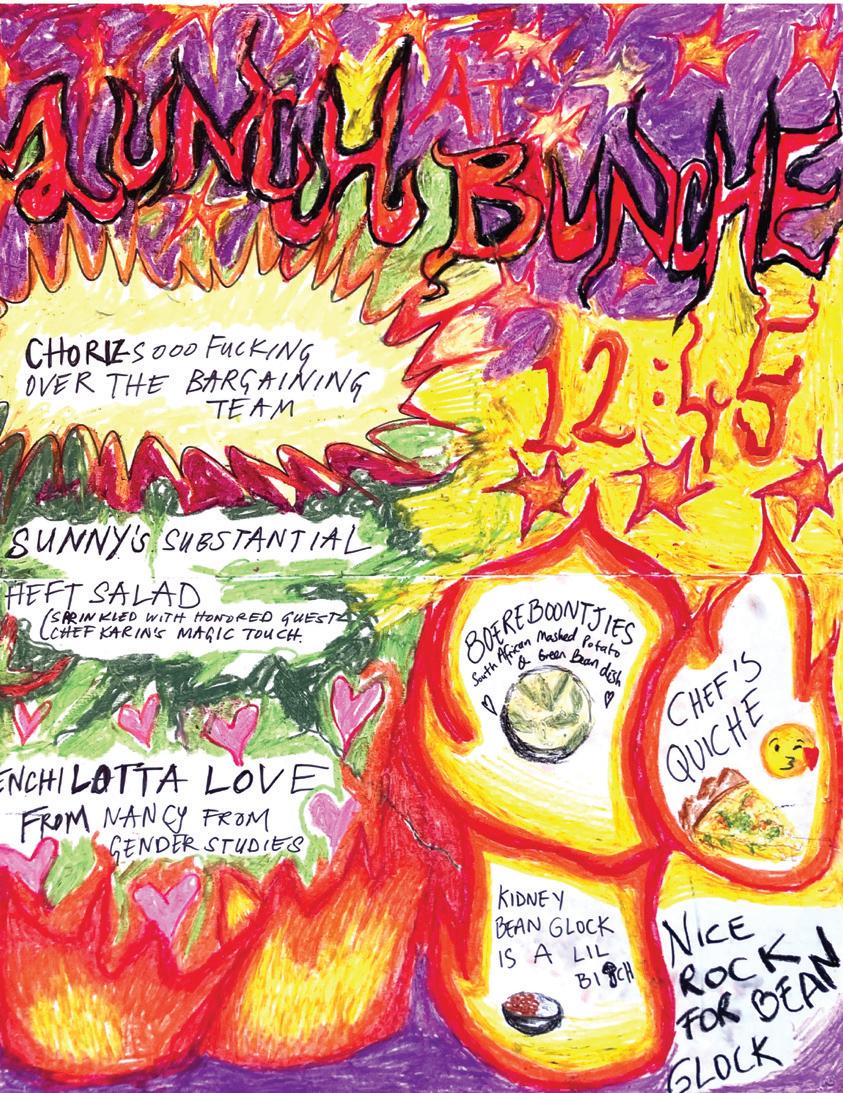 LUNCH AT BUNCHE
12:45
CHORIZ-SOOO FUCKING
OVER THE BARGAINING
TEAM
SUNNY'S SUBSTANTIAL
HEFT SALAD
(SPRINKLED WITH HONORED GUEST
CHEF KARIN'S MAGIC TOUCH.
ENCHILOTTA LOVE
FROM NANCY FROM
GENDER STUDIES
BOEREBOONTJIES
South African Mashed Potato
& Green Bean dish
CHEF'S
QUICHE
KIDNEY
BEAN GLOCK
IS A LIL
BITCH
NICE
ROCK
FOR BEAN
GLOCK